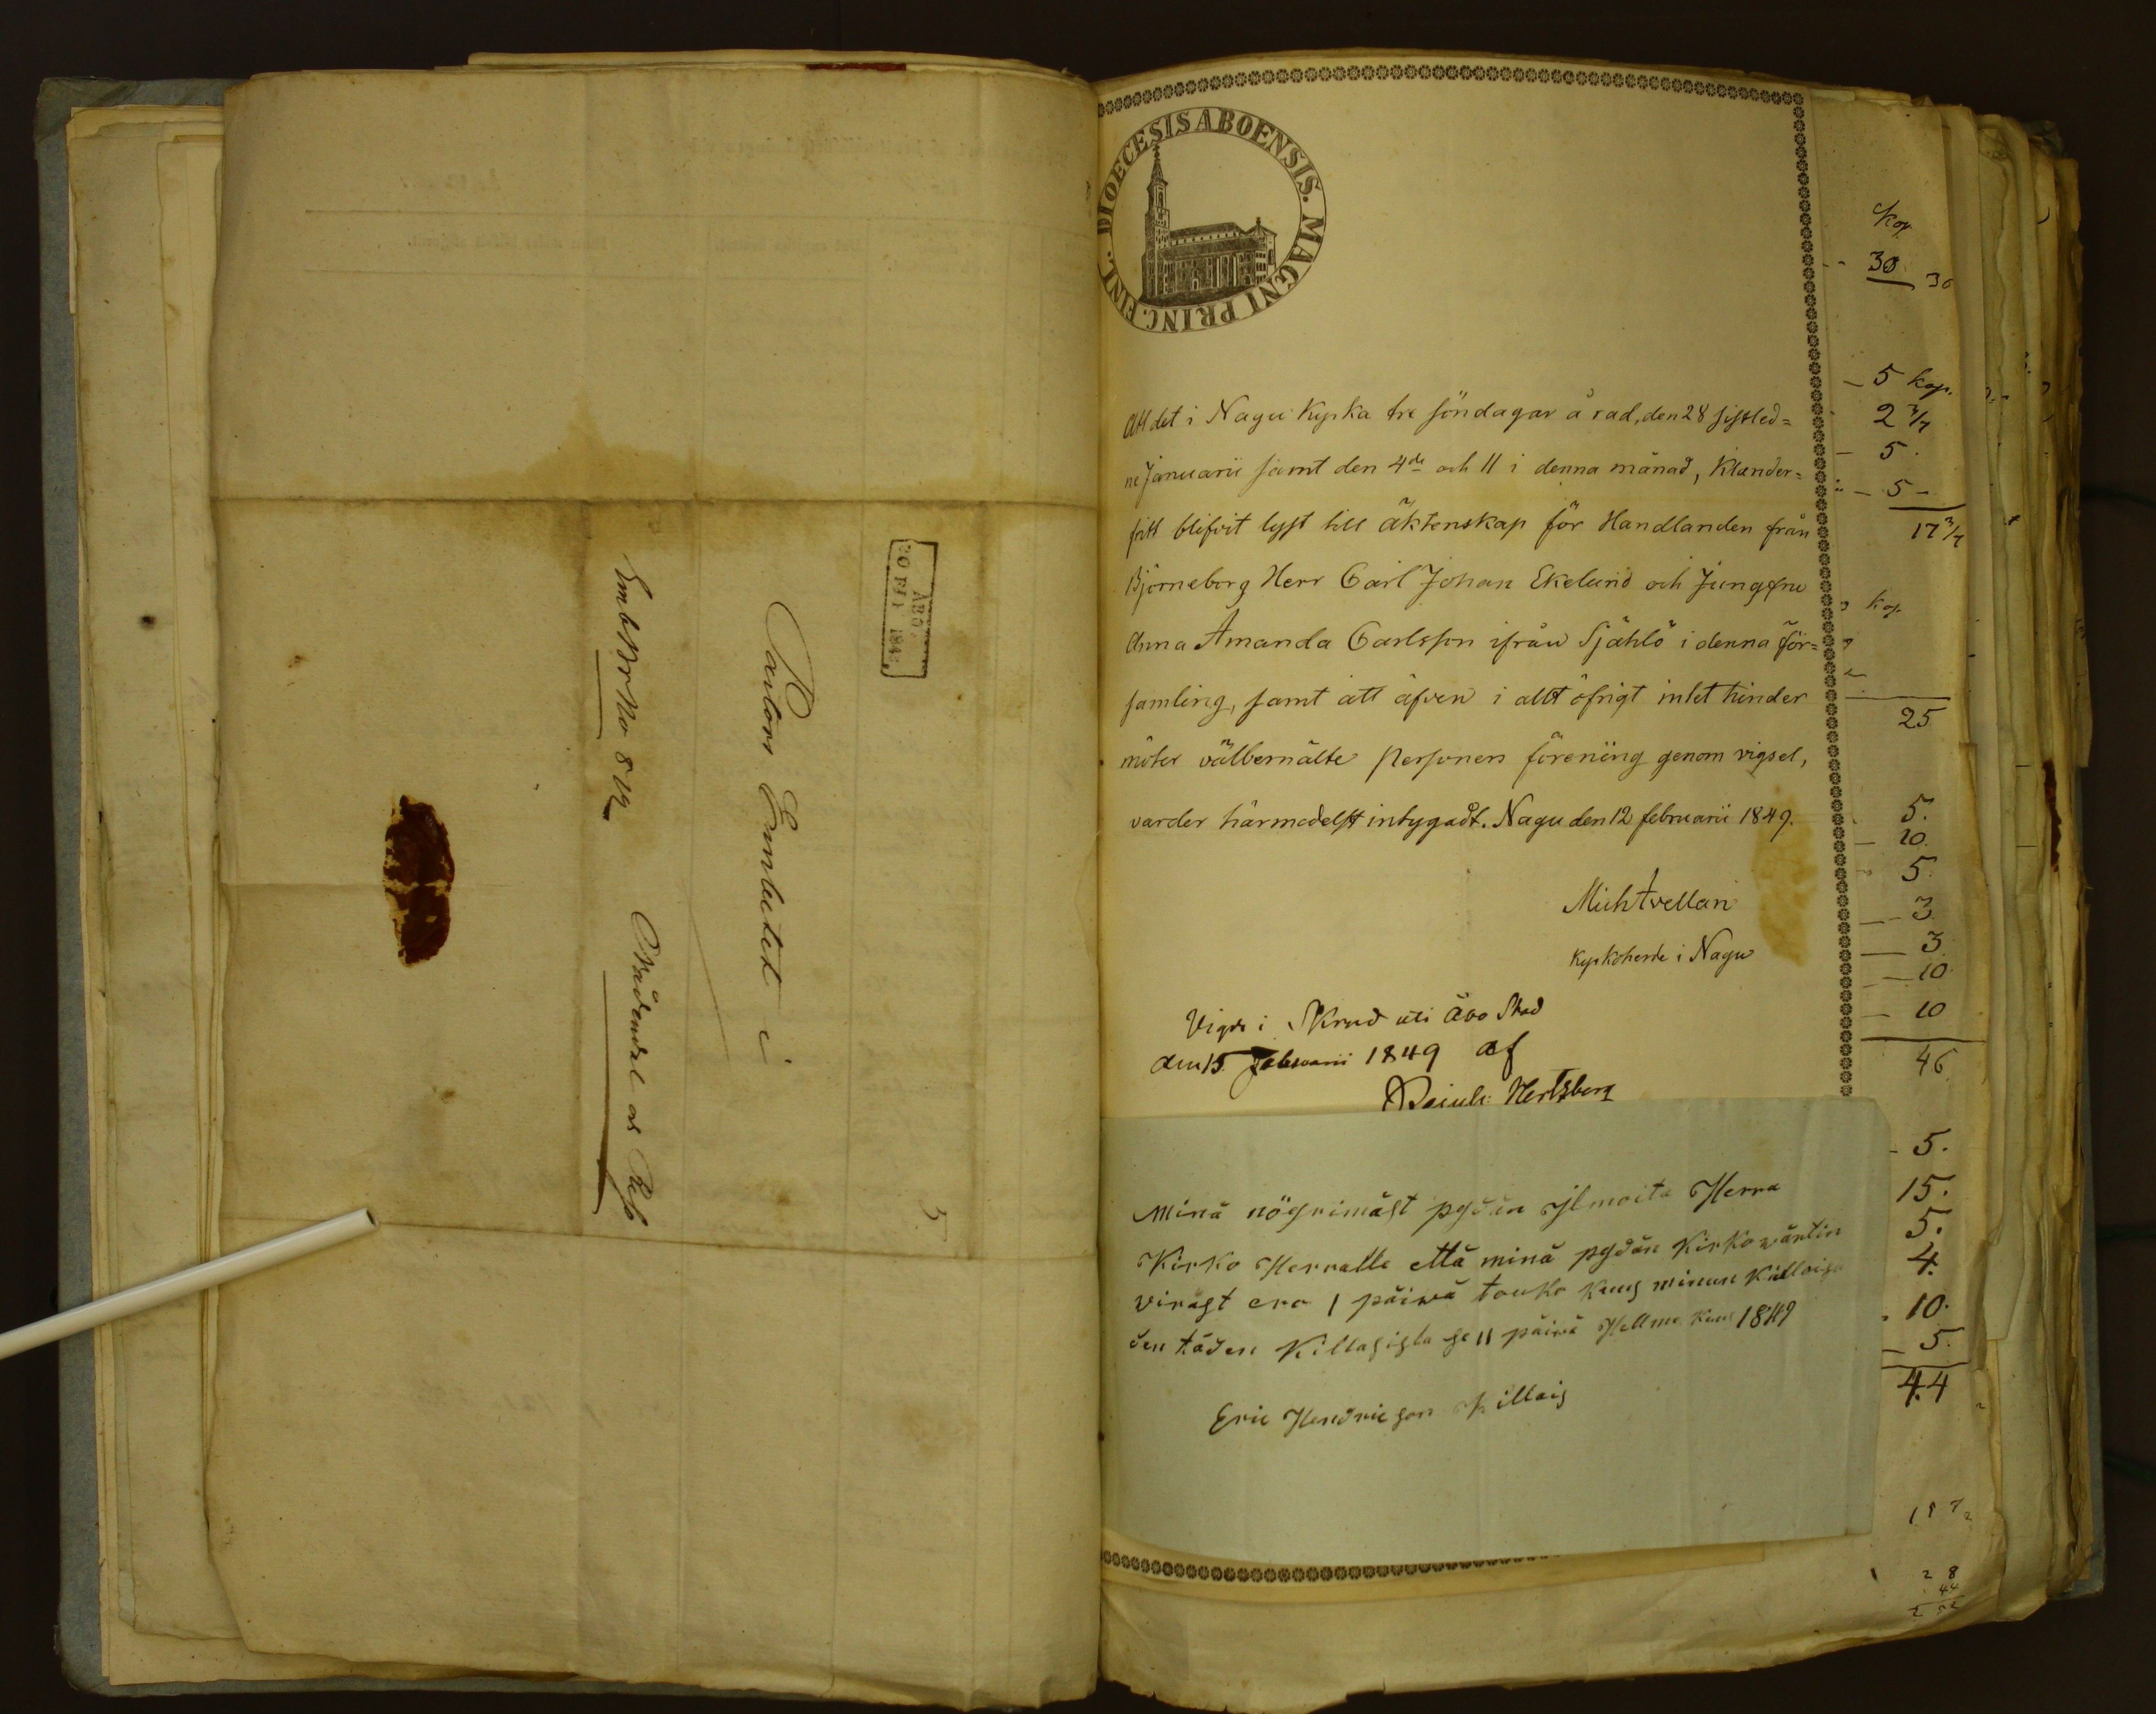 ÅBO
20 FEB 1849
Pastors Embetet i
Emb Br No 819
Nådendal och Reso
5
DIOECESIS ABOENSIS. MAGNI PRINC. FINL.
Att det i Nagu Kyrka tre söndagar å rad, den 28 sistled=
ne Januarii samt den 4de och 11 i denna månad, klander=
fritt blifvit lyst till äktenskap för Handlanden från
Björneborg Herr Carl Johan Ekelund och Jungfru
Anna Amanda Carlsson ifrån Själlö i denna för=
samling, samt att äfven i allt öfrigt intet hinder
möter välbemälte Personers förening genom vigsel,
varder härmedelst intygadt. Nagu den 12 februarii 1849.
Mich Avellan
Kyrkoherde i Nagu
Vigde i Skrud uti Åbo Stad
den 15 Februarii 1849 af
Hertzberg
Minä nögrimäst pydän jlmoita Herra
Kirko Herralle että minä pydän Kirko wärtin
virast ero 1 päiwä touko kuus minun Killaisu
den täden Killasista se 11 päivä Hellme kuus 1849
Eric Hendricson Killais
Kop
30
30
5 kop.
2 3/7
5.
5
17 3/7
Kop
25
5.
10.
5.
3
3
10
10
46
5.
15.
5.
4.
10.
5.
44
2 8
44